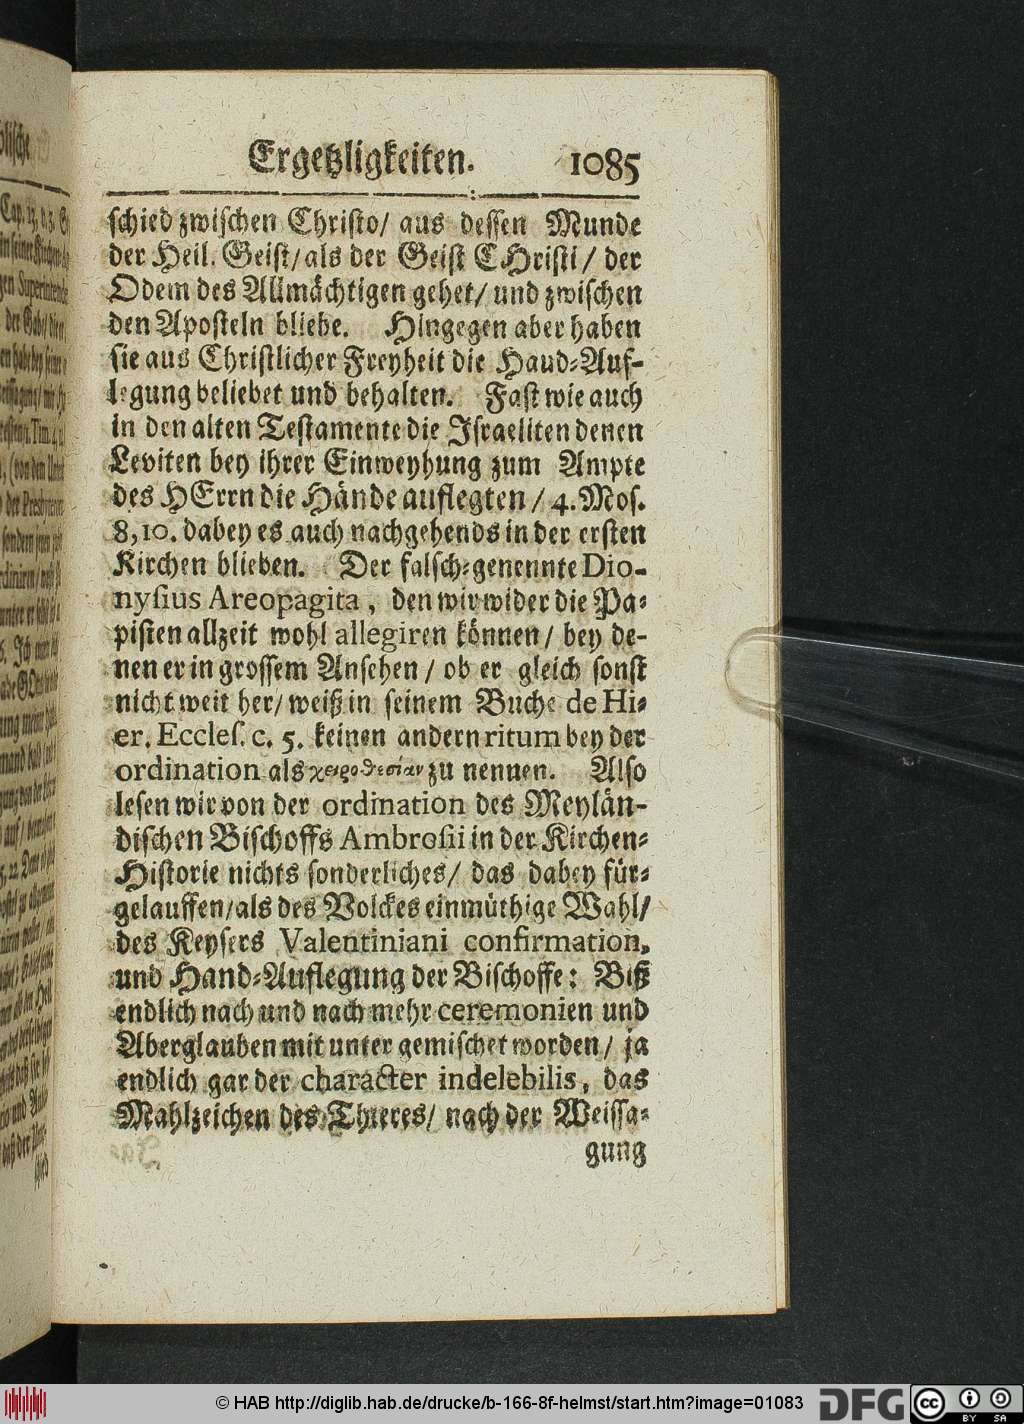 Ergetzligkeiten. 1085
schied zwischen Christo/ aus dessen Munde
der Heil. Geist/ als der Geist CHristi/ der
Odem des Allmächtigen gehet/ und zwischen
den Aposteln bliebe. Hingegen aber haben
sie aus Christlicher Freyheit die Haud-Auf-
legung beliebet und behalten. Fast wie auch
in den alten Testamente die Israeliten denen
Leviten bey ihrer Einweyhung zum Ampte
des HErrn die Hände auflegten/ 4. Mos.
8,10. dabey es auch nachgehends in der ersten
Kirchen blieben. Der falsch-genennte Dio-
nysius Areopagita, den wir wider die Pa-
pisten allzeit wohl allegiren können/ bey de-
nen er in grossem Ansehen/ ob er gleich sonst
nicht weit her/ weiß in seinem Buche de Hi-
er. Eccles. c. 5. keinen andern ritum bey der
ordination als χειροθεσίαν zu nennen. Also
lesen wir von der ordination des Meylän-
dischen Bischoffs Ambrosii in der Kirchen-
Historie nichts sonderliches/ das dabey für-
gelauffen/ als des Volckes einmüthige Wahl/
des Keysers Valentiniani confirmation,
und Hand-Auflegung der Bischoffe: Biß
endlich nach und nach mehr ceremonien und
Aberglauben mit unter gemischet worden/ ja
endlich gar der character indelebilis, das
Mahlzeichen des Thieres/ nach der Weissa-
gung
© HAB http://diglib.hab.de/drucke/b-166-8f-helmst/start.htm?image=01083
DFG
cc BY SA